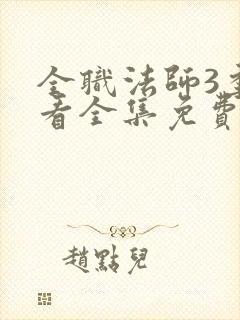 全職法師3
看全集免費
趙點兒